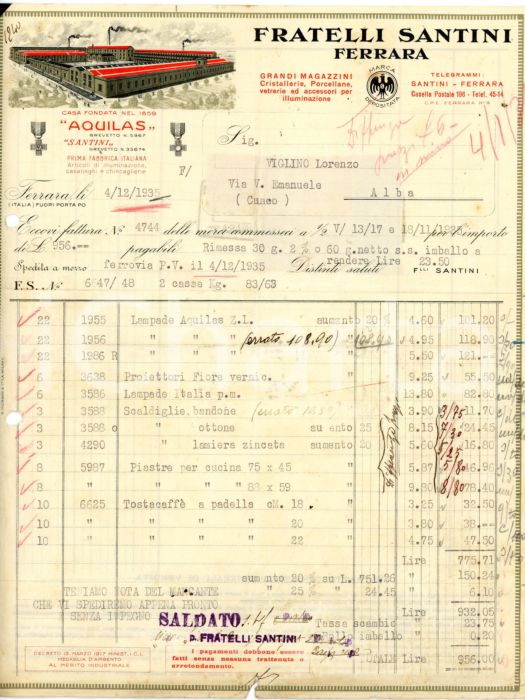 FRATELLI SANTINI
FERRARA
GRANDI MAGAZZINI
Cristallerie, Porcellane,
vetrerie ed accessori per
illuminazione
MARCA
DEPOSITATA
TELEGRAMMI:
SANTINI - FERRARA
Casella Postale 106 - Telef. 45-14
C.P.E. FERRARA N° 5
CASA FONDATA NEL 1859
"AQUILAS"
BREVETTO N. 5967
"SANTINI"
BREVETTO N. 33674
PRIMA FABBRICA ITALIANA
Articoli di illuminazione,
casalinghi e chincaglierie
F/
Sig.
VIGLINO Lorenzo
Via V. Emanuele
(Cuneo) Alba
4/1
Ferrara, li 4/12/1935
(ITALIA) FUORI PORTA PO
Eccovi fattura N° 4744 delle merci commesseci a 1/2 V/ 13/17 e 18/11/1935 per l'importo
di £ 956.— pagabili Rimessa 30 g. 2% o 60 g. netto s.s. imballo a
rendere Lire 23.50
Spedita a mezzo ferrovia P.V. il 4/12/1935 Distinti saluti F.LLI SANTINI
F.S. N° 6747/48 2 casse Kg. 83/63
22 1955 Lampade Aquilas Z.L. aumento 20 % 4.60 101.20
22 1956 " " " (errato 108.90) " 108.90 4.95 118.90
22 1986 R " " " " 5.50 121.—
6 3638 Proiettori Fiore vernic. " 9.25 55.50
6 3586 Lampade Italia p.m. " 13.80 82.80
3 3588 Scaldiglie. bandone " 3.90 11.70
3 3588 o " ottone aumento 25 8.15 24.45
3 4290 " lamiera zincata aumento 20 5.60 16.80
8 5987 Piastre per cucina 75 x 45 " 5.87 46.96
8 " " " " 88 x 59 " 9.80 78.40
10 6625 Tostacaffè a padella cM. 18 " 3.25 32.50
10 " " " " 20 " 3.80 38.—
10 " " " " 22 " 4.75 47.50
Lire 775.71
aumento 20 % su L. 751.26 " 150.24
TENIAMO NOTA DEL MANCANTE " 25 % " 24.45 " 6.10
CHE VI SPEDIREMO APPENA PRONTO
SENZA IMPEGNO
Lire 932.05
SALDATO
Tassa scambio 23.75
p. FRATELLI SANTINI
imballo 0.20
I pagamenti debbono essere
fatti senza nessuna trattenuta o
arrotondamento.
TOTALE Lire 956.00
DECRETO 15 MARZO 1917 MINIST. I.C.L.
MEDAGLIA D'ARGENTO
AL MERITO INDUSTRIALE